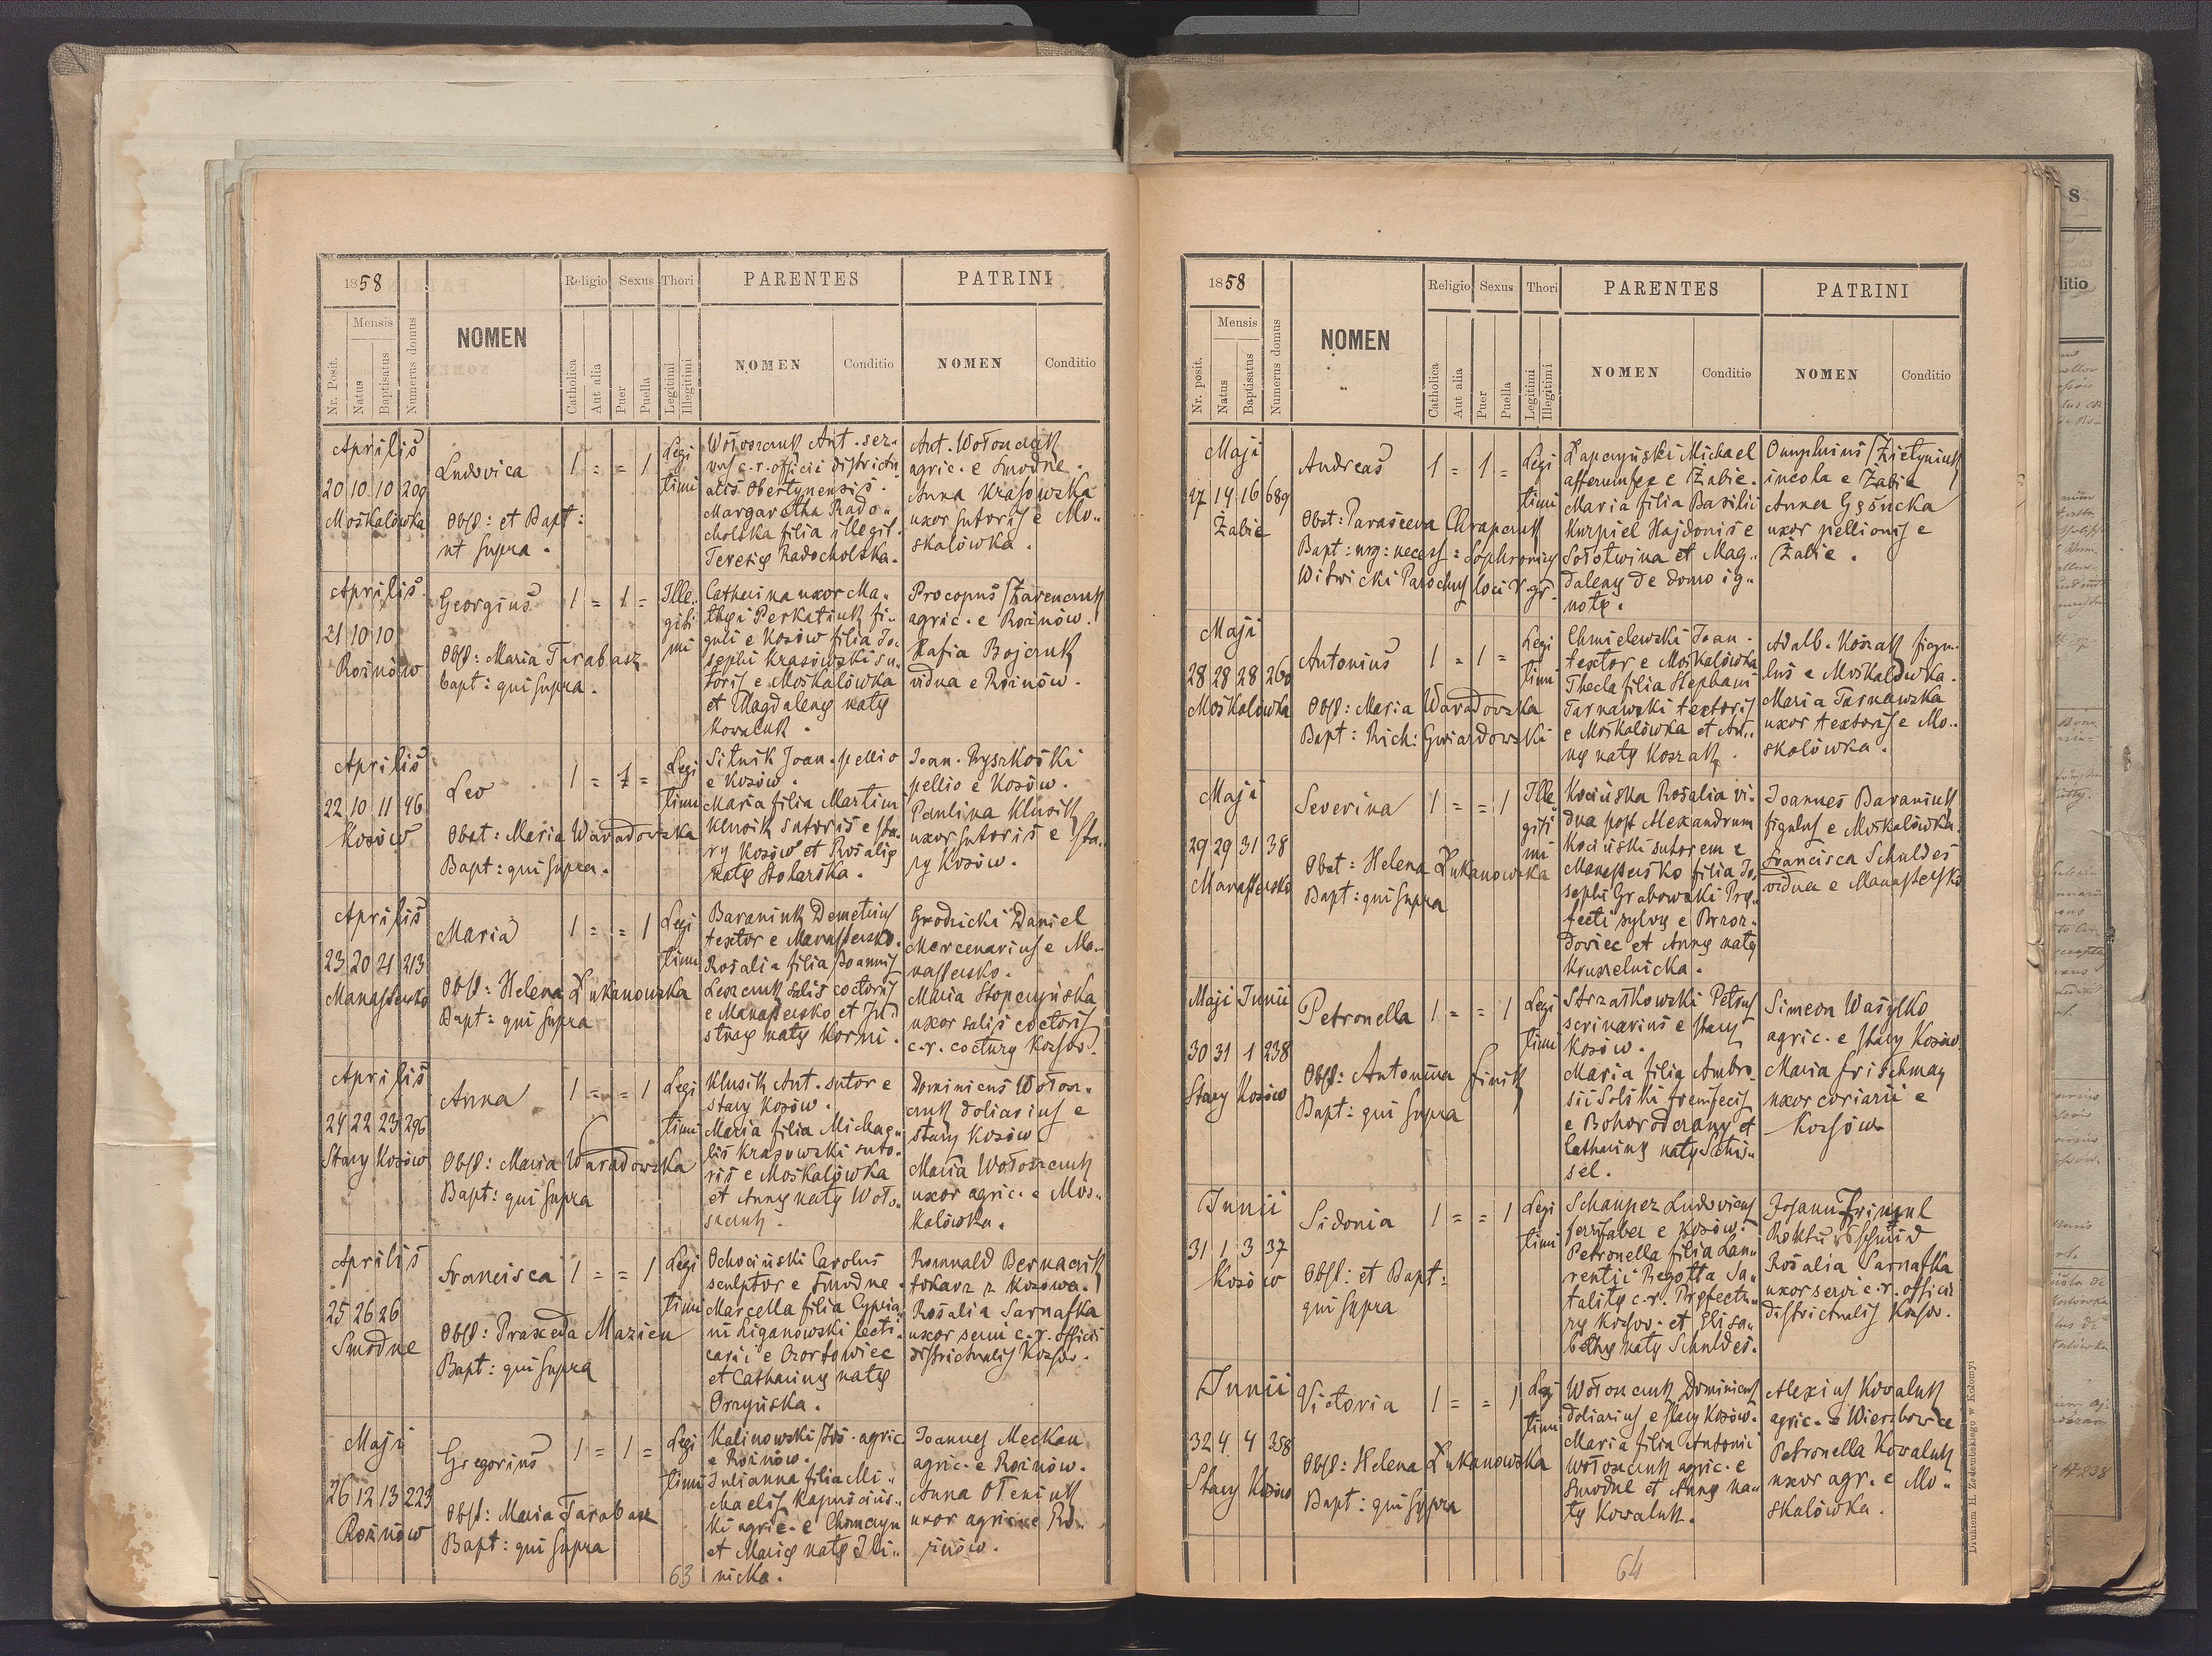 1858
Religio Sexus Thori
PARENTES
PATRINI
Nr. Posit.
Mensis
Natus
Baptisatus
Numerus domus
NOMEN
Catholica
Aut alia
Puer
Puella
Legitimi
Illegitimi
NOMEN
Conditio
NOMEN
Conditio
Aprilis
20 10 10 209
Moskalówka
Ludovica
Obst: et Bapt:
ut supra.
1 = = 1
Legi
timi
Ant. ser..
vus c.r. officii districtu
alis Obertynensis.
Margaretha Rado..
cholska filia illegit.
Teresię Radocholska.
Ant.
agric. e Smodne.
Anna Krasowska
uxor sutoris e Mo..
skalówka.
Aprilis
21 10 10
Rożnów
Georgius
Obst: Maria Tarabasz
bapt: qui supra.
1 = 1 =
Ille..
giti
mi
Catharina uxor Ma..
thęi Perkatiuk fi..
guli e Kosów filia Jo..
sephi Krasowski su..
toris e Moskalówka
et Magdalenę natę
Kowaluk.
Procopus
agric. e Rożnów.
Kafia Bojczuk
vidua e Rożnów.
Aprilis
22 10 11 46
Kosów
Leo
Obst: Maria Waradowska
Bapt: qui supra.
1 = 1 =
Legi
timi
Sitnik Joan. pellio
e Kosów.
Maria filia Martini
Klusik sutoris e sta..
ry Kosów et Rosalię
natę Stolarska.
Joan. Ryszkoski
pellio e Kosów.
Paulina Klusik
uxor sutoris e sta..
ry Kosów.
Aprilis
23 20 21 213
Manastersko
Maria
Obst: Helena Łukanowska
Bapt: qui supra
1 = = 1
Legi
timi
Baraniuk Demetrius
textor e Manastersko.
Rosalia filia Joannis
salis coctoris
e Manastersko et Ju..
stinę natę Korni.
Grodzicki Daniel
Mercenarius e Ma..
nastersko.
Maria Stopczyńska
uxor salis coctoris
c.r. cocturę Kossov.
Aprilis
24 22 23 296
Stary Kosów
Anna
Obst: Maria Waradowska
Bapt: qui supra
1 = = 1
Legi
timi
Klusik Ant. sutor e
stary Kosów.
Maria filia Michae..
lis Krasowski suto..
ris e Moskalówka
et Annę natę Woło..
szczuk.
Dominicus Wołosz..
czuk doliarius e
stary Kosów
Maria Wołoszczuk
uxor agric. e Mos..
kalówka.
Aprilis
25 26 26
Smodne
Francisca
Obst: Praxeda Mazieu
Bapt: qui supra
1 = = 1
Legi
timi
Ochociński Carolus
sculptor e Smodne.
Marcella filia Cypria
ni Liganowski lecti..
carii e Czortowiec
et Catharinę natę
Romuald Bernacik
tokarz z Kosowa.
Rosalia Sarnafka
uxor servi c.r. officii
districtualis Kossov.
Maji
26 12 13 223
Rożnów
Gregorius
Obst: Maria Tarabasz
Bapt: qui supra
1 = 1 =
Legi
timi
Kalinowski Jos. agric.
e Rożnów.
Julianna filia Mi..
chaelis Kapuścińs..
ki agric. e Chomczyn
et Marię natę Ili..
nicka.
Joannes Meckan
agric. e Rożnów.
Anna Oleniuk
uxor agric. e Ro..
żnów.
63
1858
Religio Sexus Thori
PARENTES
PATRINI
Nr. posit.
Mensis
Natus
Baptisatus
Numerus domus
NOMEN
Catholica
Aut alia
Puer
Puella
Legitimi
Illegitimi
NOMEN
Conditio
NOMEN
Conditio
Maji
27 14 16 689
Żabie
Andreas
Obst: Parasceva Chrapczuk
Bapt: urg: necess: Sophronius
Witwicki Parochus loci r. gr.
1 = 1 =
Legi
timi
Łapczyński Michael
e Żabie.
Maria filia Basilii
Kurpiel Hajdonis e
Sołotwina et Mag..
dalenę de domo ig..
notę.
Onuphrius
incola e Żabie
Anna
uxor pellionis e
Żabie.
Maji
28 28 28 260
Moskalówka
Antonius
Obst: Maria Waradowska
Bapt: Rich: Gwiazdowski
1 = 1 =
Legi
timi
Chmielewski Joan.
textor e Moskalówka
Thecla filia Stephani
Tarnawski textoris
e Moskalówka et An..
nę natę Koszak.
Adalb. Koszak figu..
lus e Moskalówka.
Maria Tarnawska
uxor textoris e Mo..
skalówka.
Maji
29 29 31 38
Manastersko
Severina
Obst: Helena Łukanowska
Bapt: qui supra
1 = = 1
Ille
giti
mi
Kocińska Rosalia vi..
dua post Alexandrum
Kociński sutorem e
Manastersko filia Jo..
sephi Grabowski Prę..
fecti sylvę e Brzoz..
dowiec et Annę natę
Kruszelnicka.
Joannes Baraniuk
figulus e Moskalówka.
Francisca Schuldes
vidua e Manastersko
Maji Junii
30 31 1 238
Stary Kosów
Petronella
Obst: Antonina Finik
Bapt: qui supra
1 = = 1
Legi
timi
Strzałkowski Petrus
scrinarius e stary
Kosów.
Maria filia Ambro..
sii Solski frenificis
e Bohorodczany et
Catharinę natę Schis..
sel.
Simeon Wasylko
agric. e stary Kosów
Maria Frischmay
uxor coriarii e
Kossów
Junii
31 1 3 37
Kosów
Sidonia
Obst: et Bapt:
qui supra
1 = = 1
Legi
timi
Schauper Ludovicus
ferrifaber e Kosów.
Petronella filia Lau..
rentii Regotta Sa..
telitę c.r. Pręfectu..
rę Kossov. et Elisa..
bethę natę Schuldes.
Johann
Rosalia Sarnafka
uxor servi c.r. officii
districtualis Kossov.
Junii
32 4 4 358
Stary Kosów
Victoria
Obst: Helena Łukanowska
Bapt: qui supra
1 = = 1
Legi
timi
Wołoszczuk Dominicus
doliarius e stary Kosów.
Maria filia Antonii
Wołoszczuk agric. e
Smodne et Annę na..
tę Kowaluk.
Alexius Kowaluk
agric. e Wierzbowce
Petronella Kowaluk
uxor agr. e Mo..
skalówka.
64
Drukiem H. Zadembskiego w Kołomyi